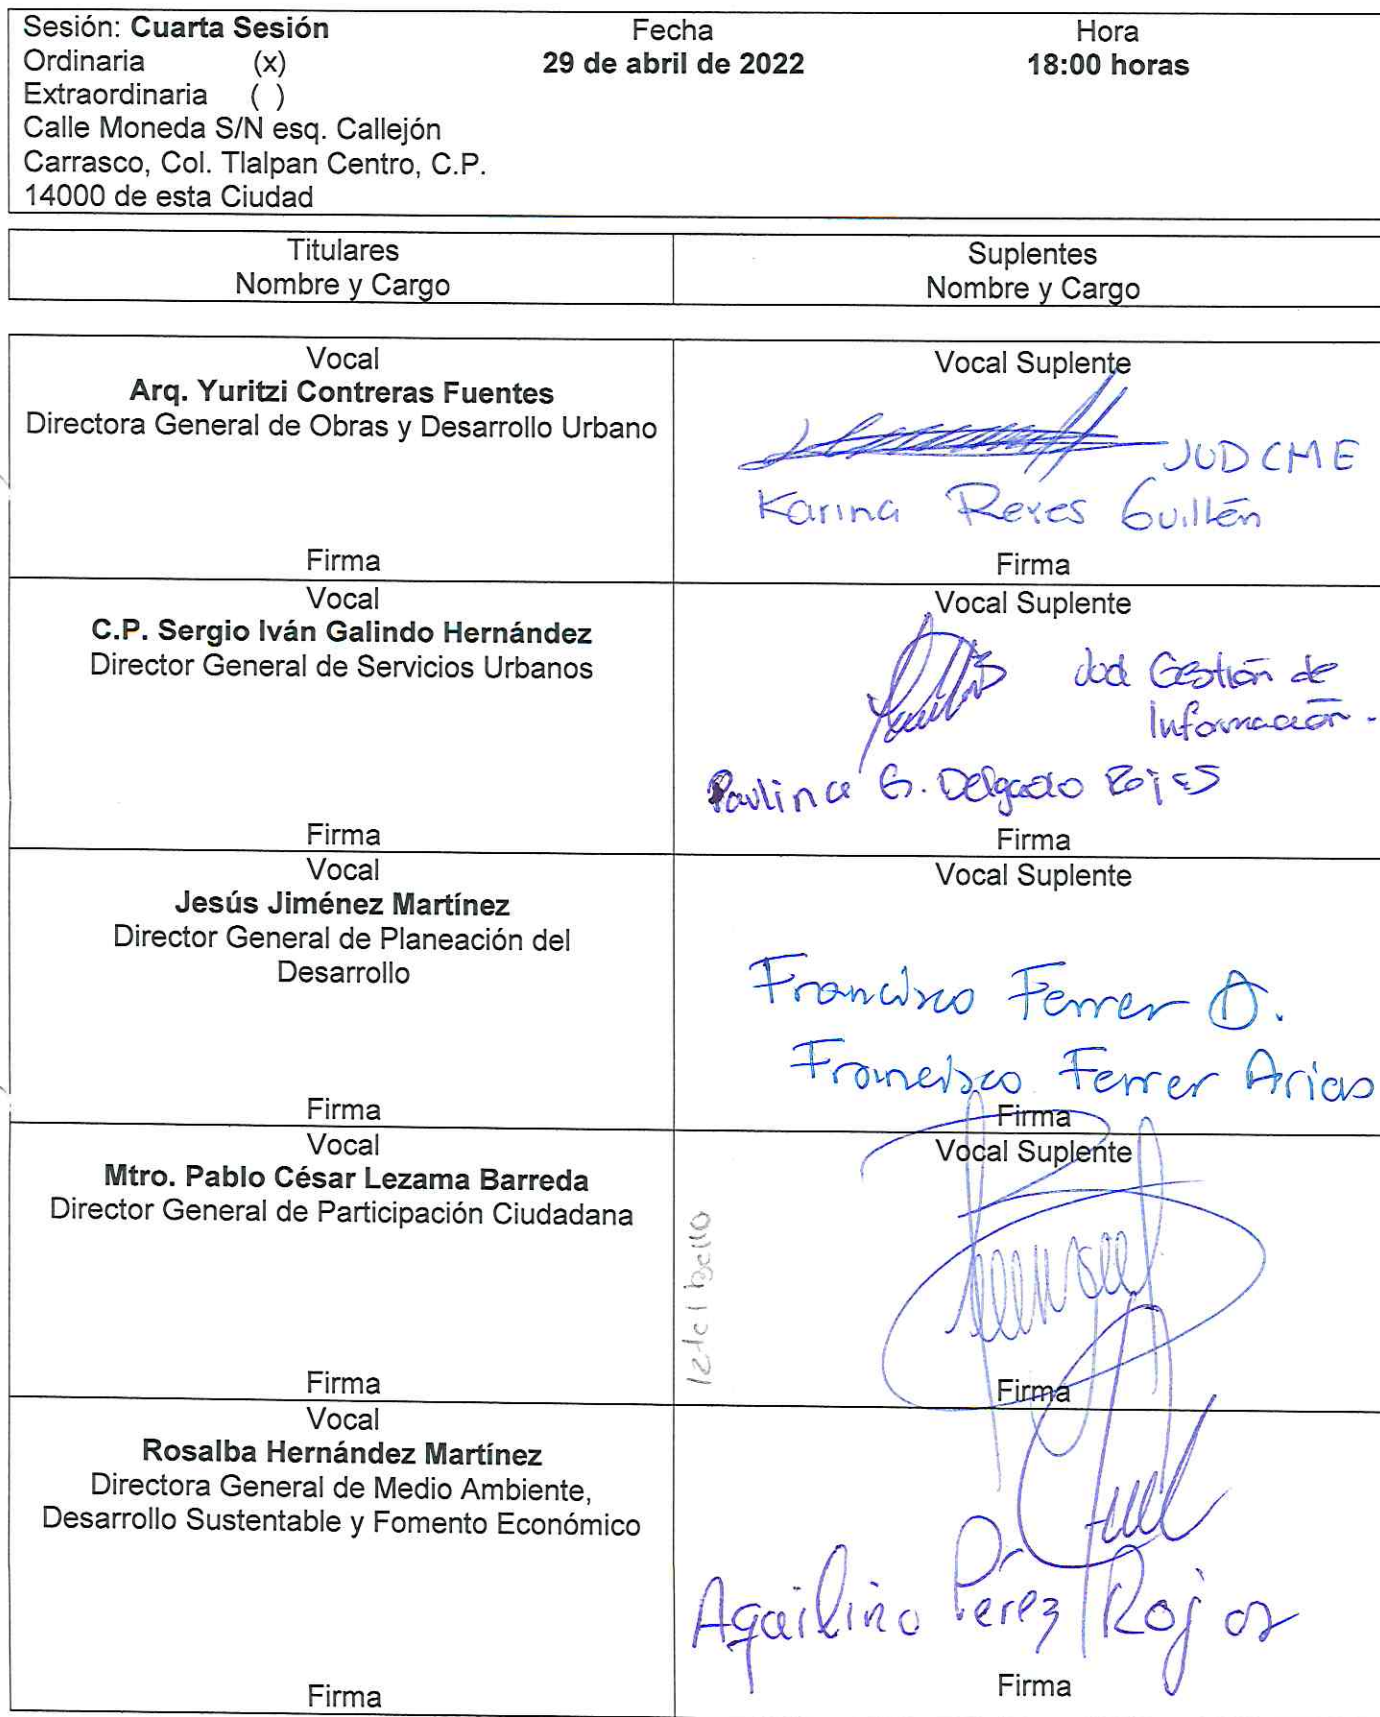 Sesión: Cuarta Sesión
Ordinaria (x)
Extraordinaria ( )
Calle Moneda S/N esq. Callejón
Carrasco, Col. Tlalpan Centro, C.P.
14000 de esta Ciudad
Fecha
29 de abril de 2022
Hora
18:00 horas
Titulares
Nombre y Cargo
Suplentes
Nombre y Cargo
Vocal
Arq. Yuritzi Contreras Fuentes
Directora General de Obras y Desarrollo Urbano
Firma
Vocal Suplente
JUDCME
Karina Reyes Guillén
Firma
Vocal
C.P. Sergio Iván Galindo Hernández
Director General de Servicios Urbanos
Firma
Vocal Suplente
Jud Gestión de
Información.
Paulina G. Delgado Rojas
Firma
Vocal
Jesús Jiménez Martínez
Director General de Planeación del
Desarrollo
Firma
Vocal Suplente
Francisco Ferrer A.
Francisco Ferrer Arias
Firma
Vocal
Mtro. Pablo César Lezama Barreda
Director General de Participación Ciudadana
Firma
Vocal Suplente
Bello
Firma
Vocal
Rosalba Hernández Martínez
Directora General de Medio Ambiente,
Desarrollo Sustentable y Fomento Económico
Firma
Aquilino Pérez Rojas
Firma